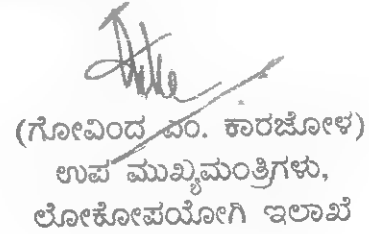 (ಗೋವಿಂದ ಎಂ. ಕಾರಜೋಳ)
ಉಪ ಮುಖ್ಯಮಂತ್ರಿಗಳು,
ಲೋಕೋಪಯೋಗಿ ಇಲಾಖೆ